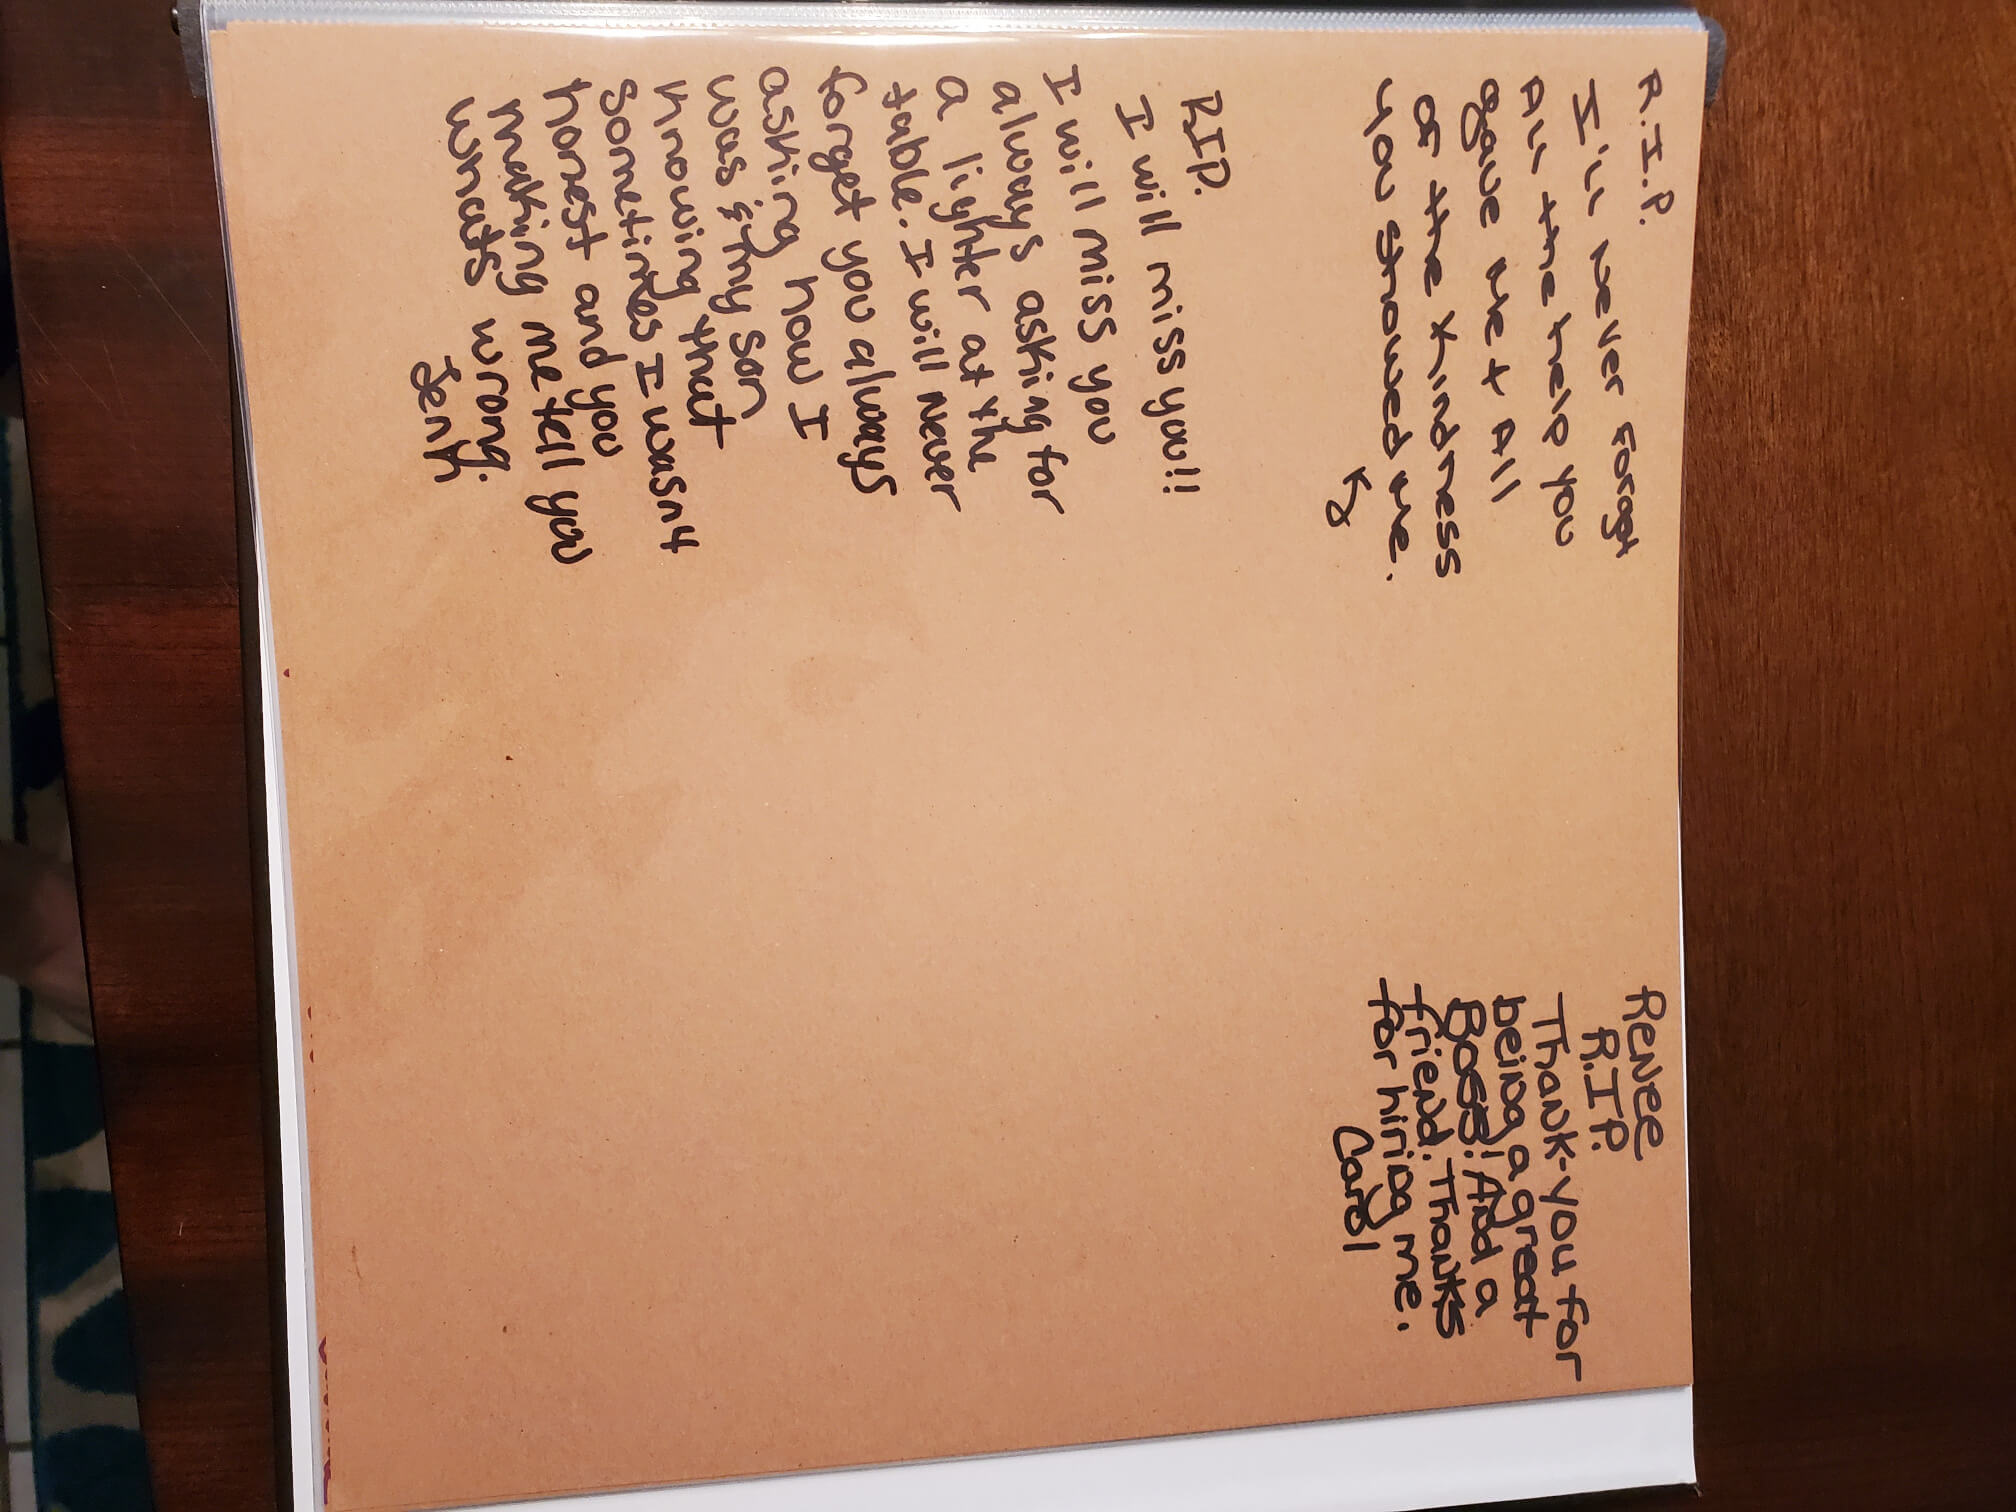 R.I.P.
I'll never Forogt
All the help you
gave me + All
of the kindness
you showed me.
RIP.
I will miss you!!
I will miss you
always asking for
a lighter at the
table. I will never
forget you always
asking how I
was & my son
knowing that
Sometimes I wasn't
honest and you
making me tell you
whats wrong.
Jenn
Renee
R.I.P.
Thank-you for
being a great
Boss! And a
friend. Thanks
for hiring me.
Carol